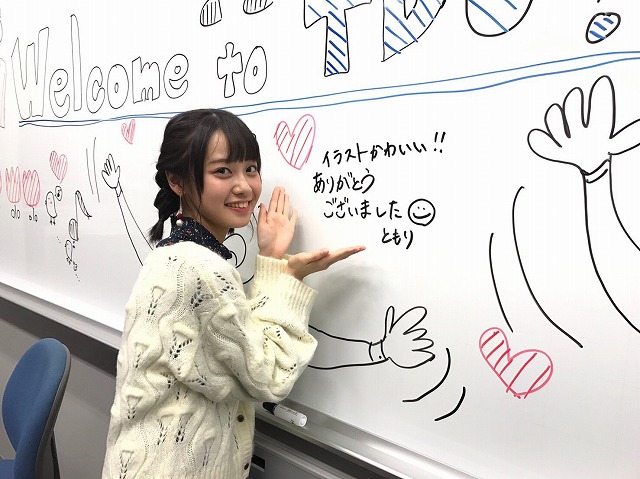 Welcome to TBS!
イラストかわいい!!
ありがとう
ございました
ともり